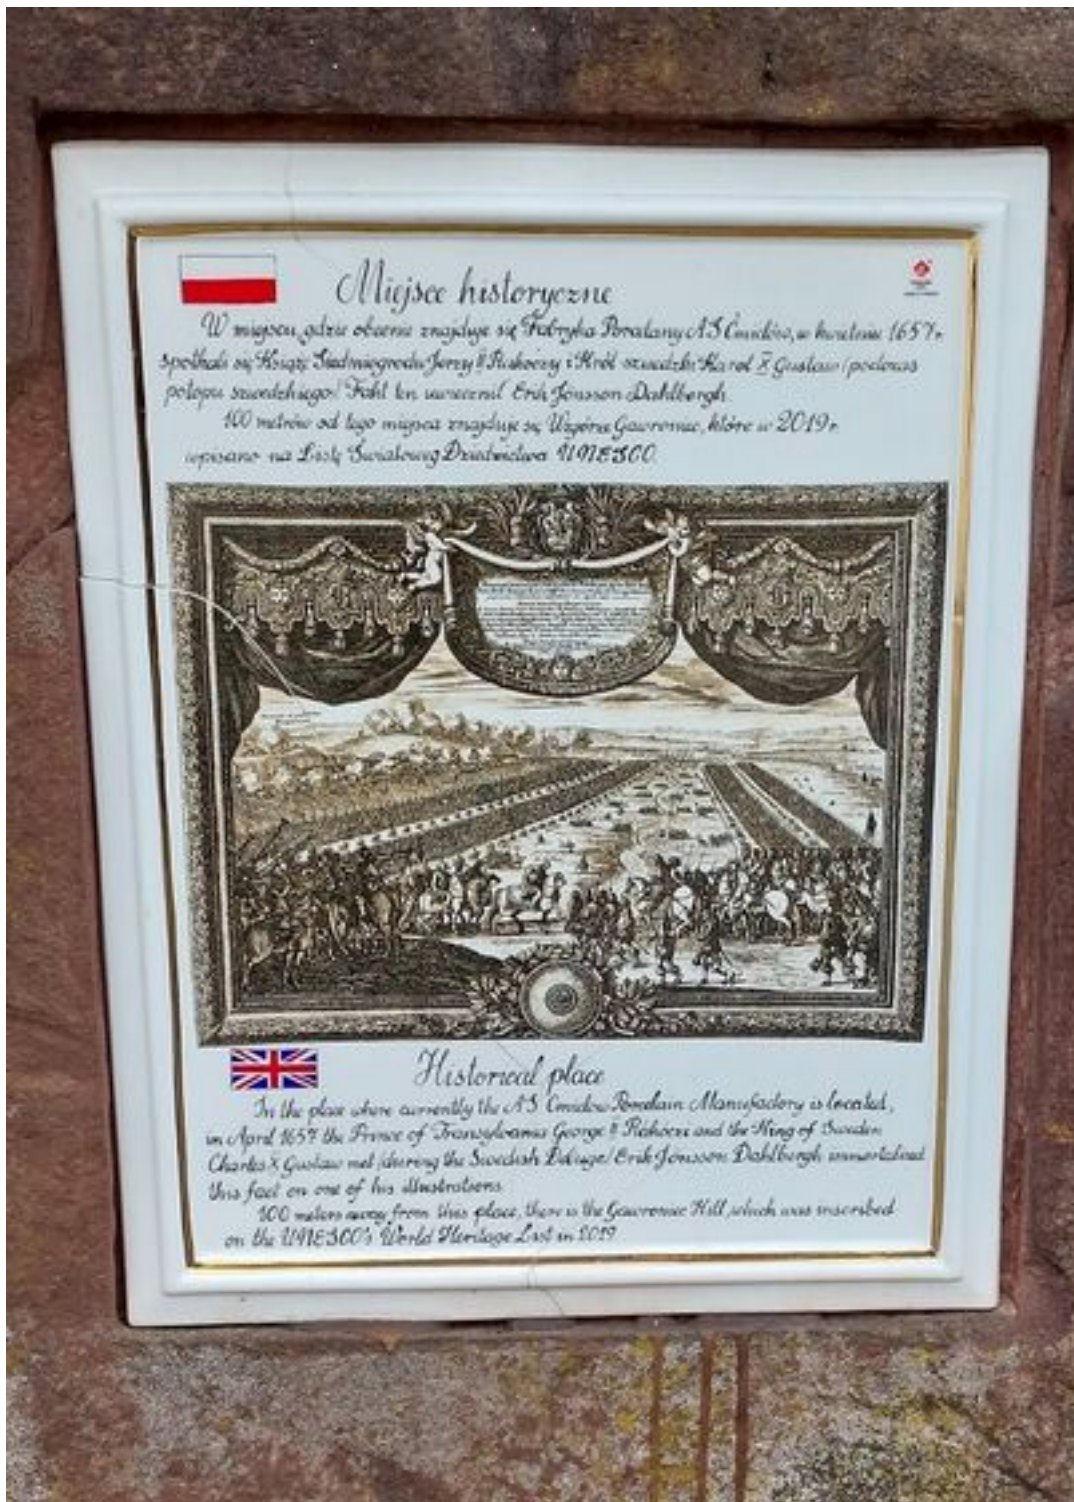 Miejsce historyczne
W miejscu, gdzie obecnie znajduje się Fabryka Porcelany AS Ćmielów, w kwietniu 1657 r.
spotkali się Książę Siedmiogrodu Jerzy II Rakoczy i Król szwedzki Karol X Gustaw /podczas
potopu szwedzkiego/ Fakt ten uwiecznił Erik Jönsson Dahlbergh.
100 metrów od tego miejsca znajduje się Wzgórze Gawroniec, które w 2019 r.
wpisano na Listę Światowego Dziedzictwa UNESCO.
Historical place
In the place where currently the AS Ćmielów Porcelain Manufactory is located,
in April 1657 the Prince of Transylvania George II Rakoczi and the King of Sweden
Charles X Gustaw met /during the Swedish Deluge/ Erik Jönsson Dahlbergh immortalised
this fact on one of his illustrations.
100 meters away from this place, there is the Gawroniec Hill, which was inscribed
on the UNESCO's World Heritage List in 2019